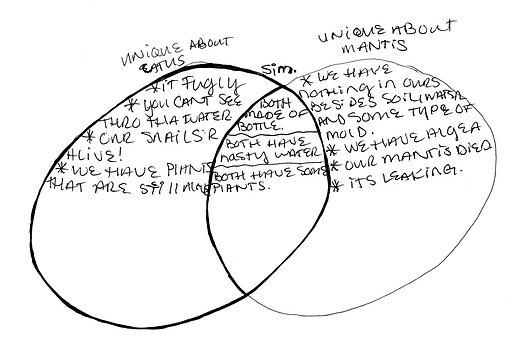 UNIQUE ABOUT
EATUS
*IT FUGLY
*YOU CANT SEE
THRO THA WATER
*OUR SNAILS'R
ALIVE!
*WE HAVE PLANTS
THAT ARE STILL ALIVE
Sim.
BOTH
MADE OF
BOTTLE.
BOTH HAVE
NASTY WATER
BOTH HAVE SOME
PLANTS.
UNIQUE ABOUT
MANTIS
*WE HAVE
NOTHING IN OURS
BESIDES SOIL, WATER
AND SOME TYPE OF
MOLD.
*WE HAVE ALGEA
*OUR MANTIS DIED
*ITS LEAKING.